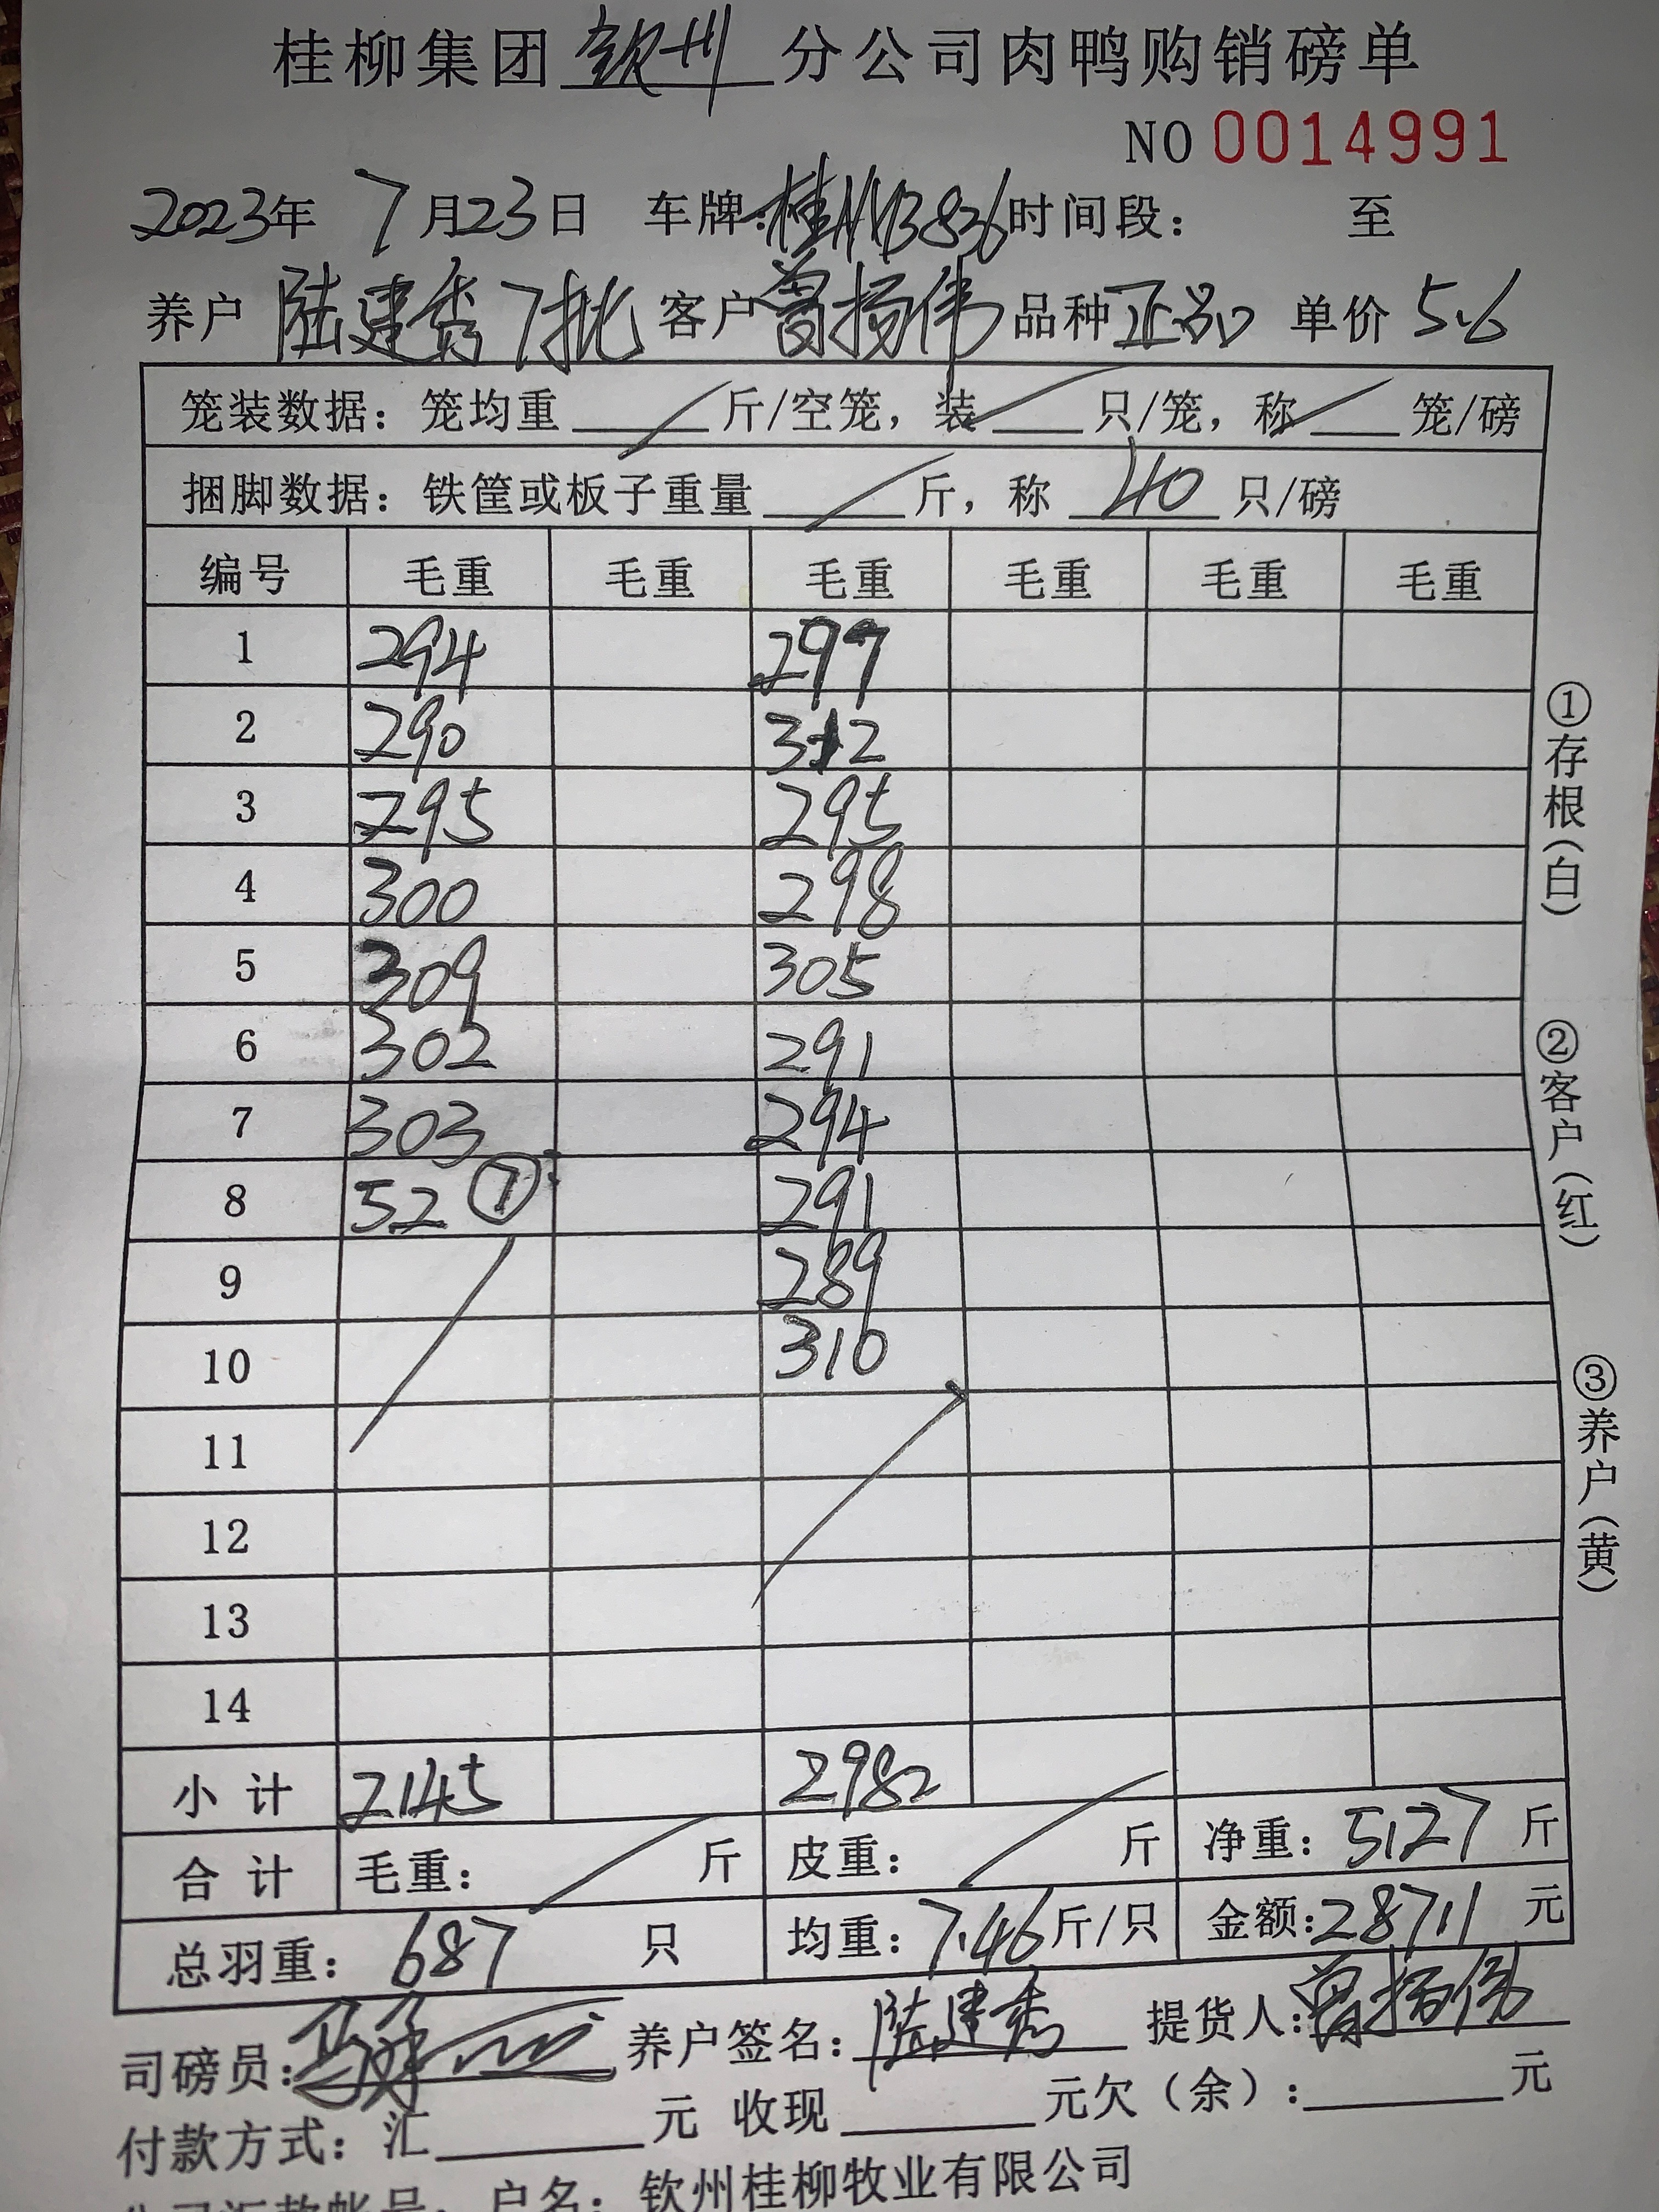 桂柳集团钦州分公司肉鸭购销磅单
NO 0014991
2023年 7月23日 车牌:桂N13836时间段: 至
养户 陆建秀7批 客户曾扬伟 品种正品 单价 5.6
笼装数据: 笼均重 斤/空笼, 装 只/笼, 称 笼/磅
捆脚数据: 铁筐或板子重量 斤, 称 40 只/磅
编号 毛重 毛重 毛重 毛重 毛重 毛重
1 294 297
2 290 312
3 295 295
4 300 298
5 309 305
6 302 291
7 303 294
8 52 ⑦ 291
9 289
10 310
11
12
13
14
小计 2145 2982
合计 毛重: 斤 皮重: 斤 净重: 5127 斤
总羽重: 687 只 均重: 7.46斤/只 金额:28711 元
司磅员: 养户签名: 陆建秀 提货人:曾扬伟
付款方式: 汇 元 收现 元欠(余): 元
户名: 钦州桂柳牧业有限公司
①存根(白)
②客户(红)
③养户(黄)